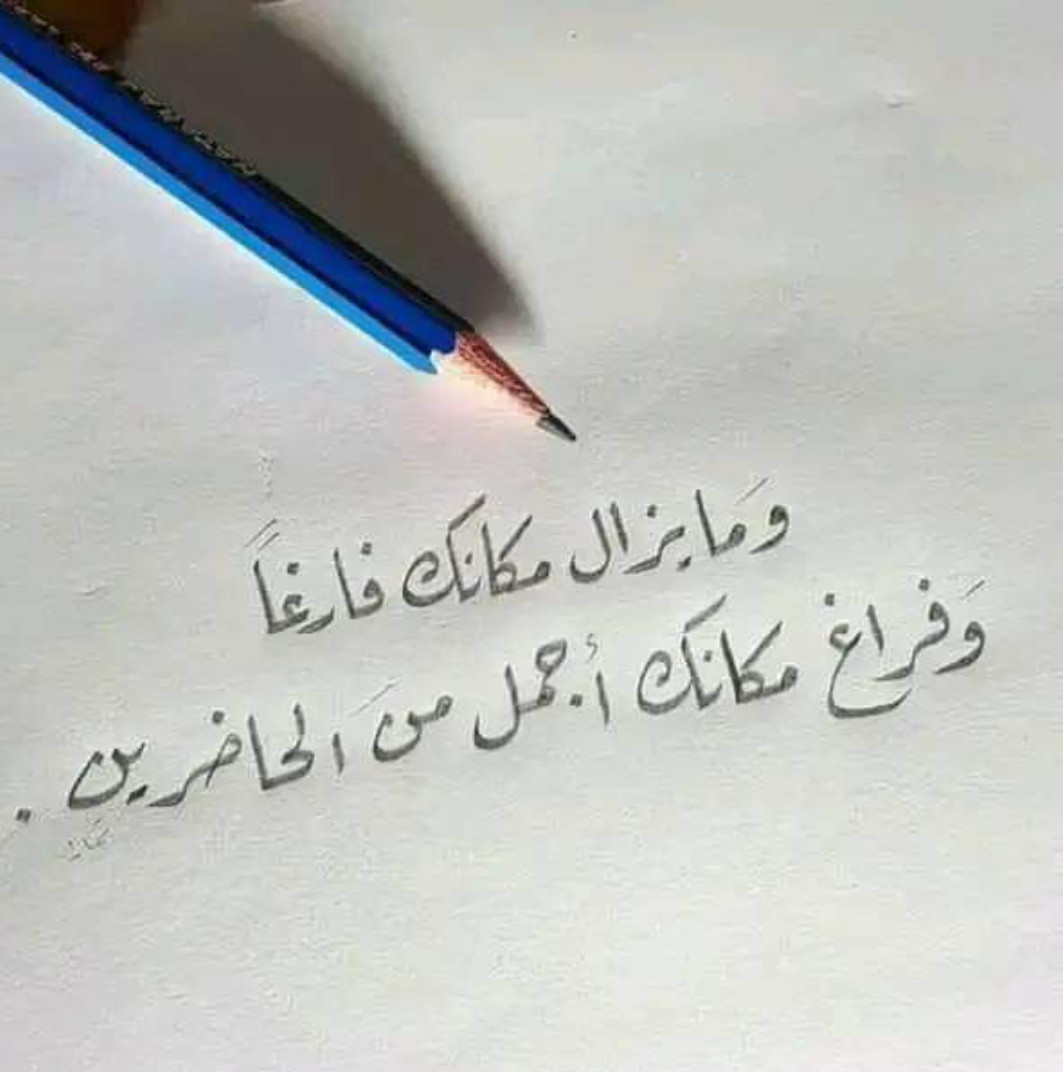 وَما يزال مكانك فارغاً
وَفراغ مكانك أجمل منَ الحاضرين .